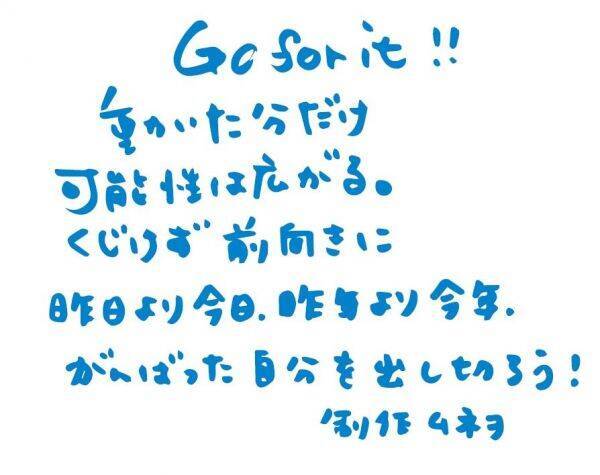 Go for it !!
動いた分だけ
可能性は広がる。
くじけず前向きに
昨日より今日.昨年より今年.
がんばった自分を出し切ろう!
制作ムネヨ